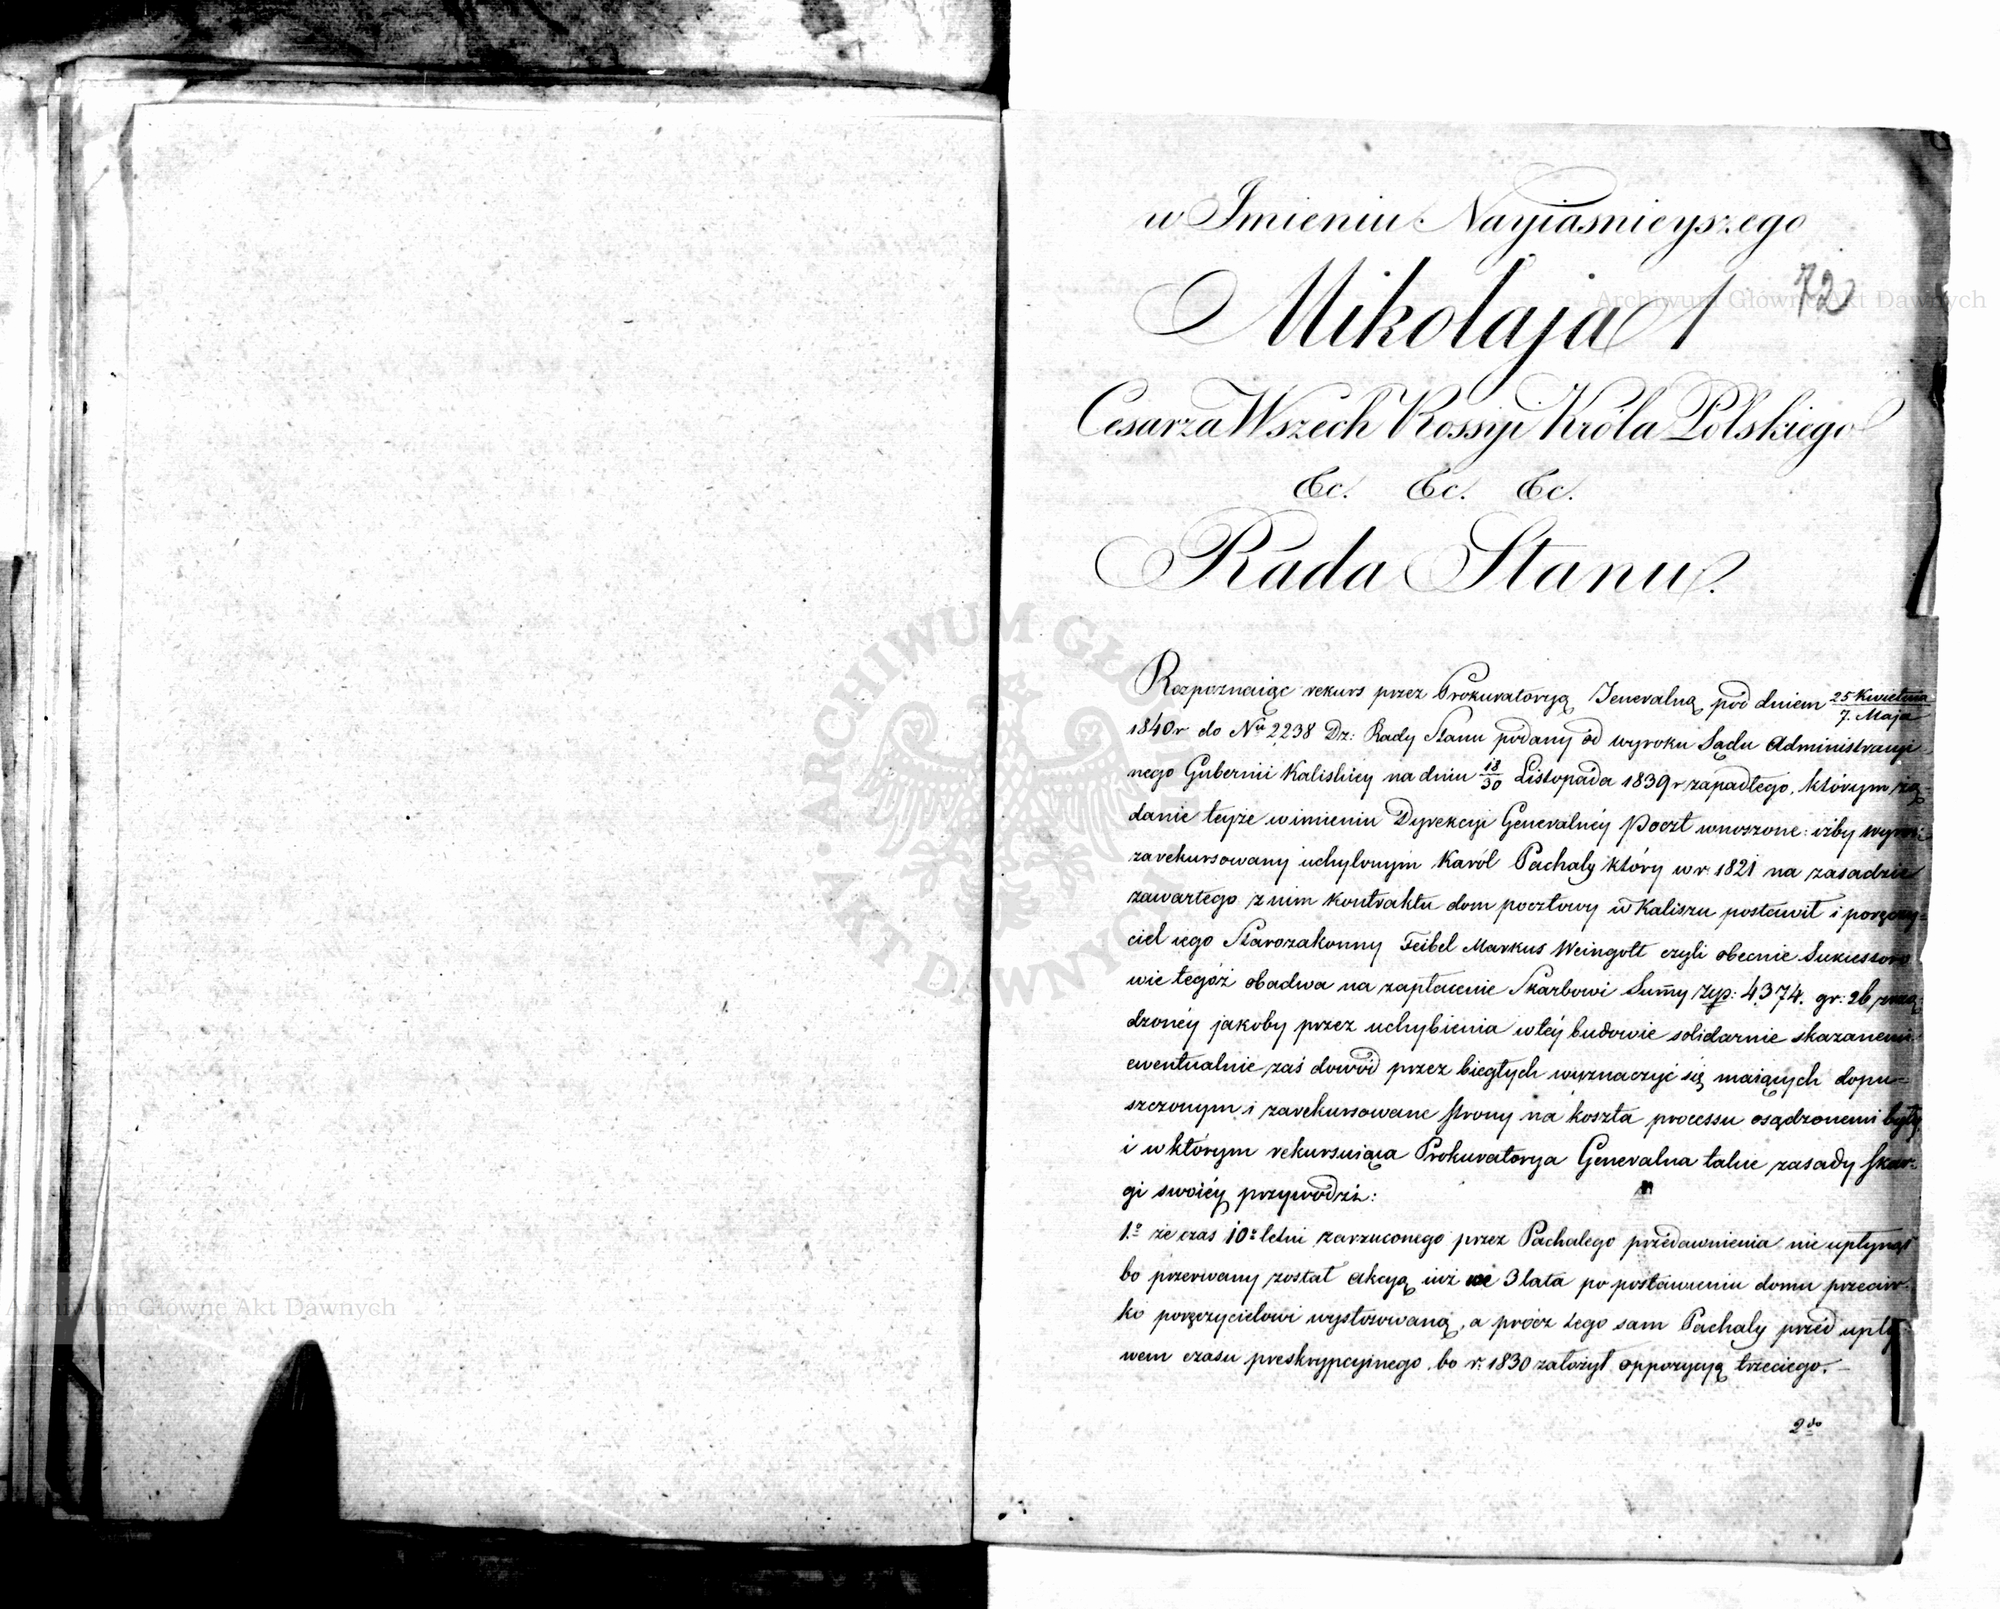 w Imieniu Nayiasnieyszego
Mikołaja I
72
Cesarza Wszech Rossyi Króla Polskiego
&c. &c. &c.
Rada Stanu.
Rozpoznaiąc rekurs przez Prokuratoryą Jeneralną pod dniem 25 Kwietnia / 7. Maja
1840 r do Nru 2238 Dz: Rady Stanu podany od wyroku Sądu Administracyi
nego Gubernii Kaliskiey na dniu 18/30 Listopada 1839 r zapadłego, którym żą=
danie teyże w imieniu Dyrekcyi Generalnéy Poczt wnoszone: iżby wyrok
zarekursowany uchylonym Karól Pachaly który w r. 1821 na zasadzie
zawartego z nim kontraktu dom pocztowy w Kaliszu postawił i poręczy=
ciel iego Starozakonny Feibel Markus Weingott czyli obecnie Sukcessoro
wie tegóż obadwa na zapłacenie Skarbowi Summy złp: 4374. gr: 26
dzonéy jakoby przez uchybienia w téy budowie solidarnie skazanemi
ewentualnie zaś dowód przez biegłych wyznaczyć się maiących dopu=
szczonym i zarekursowane strony na koszta processu osądzonemi były
i w którym rekursuiąca Prokuratorya Generalna takie zasady skar=
gi swoiéy przywodzi:
1.o że czas 10o letni zarzuconego przez Pachalego przedawnienia nie upłynął
bo przerwany został akcyą iuż we 3 lata po postawieniu domu przeciw=
ko poręczycielowi wystosowaną, a prócz tego sam Pachaly przed upły
wem czasu preskrypcyinego, bo r. 1830 założył oppozycyą trzeciego. —
2do
Archiwum Główne Akt Dawnych
Archiwum Główne Akt Dawnych
ARCHIWUM GŁÓWNE AKT DAWNYCH